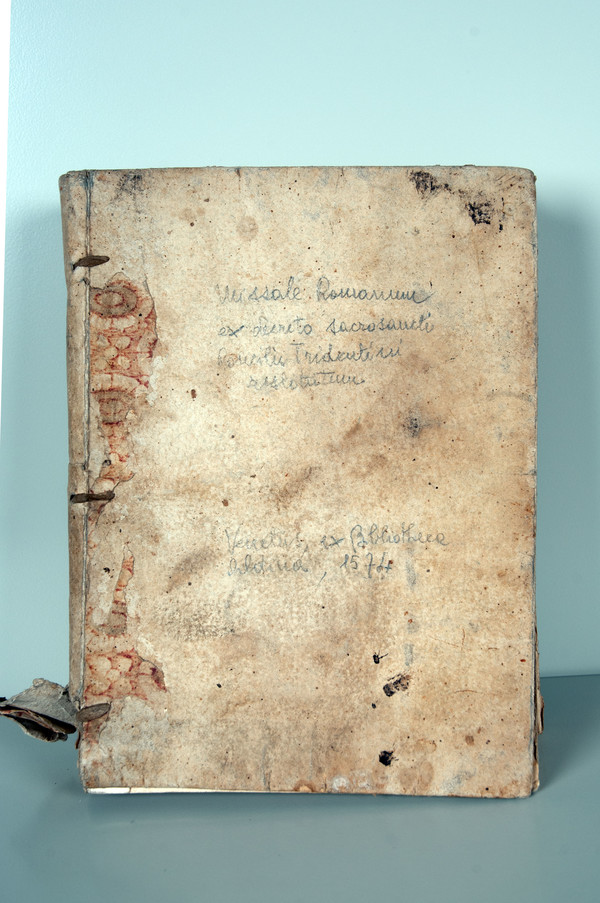 Missale Romanum
ex Decreto sacrosancti
Concilii Tridentini
restitutum
Venetiis, ex Bibliotheca
Aldina, 1574